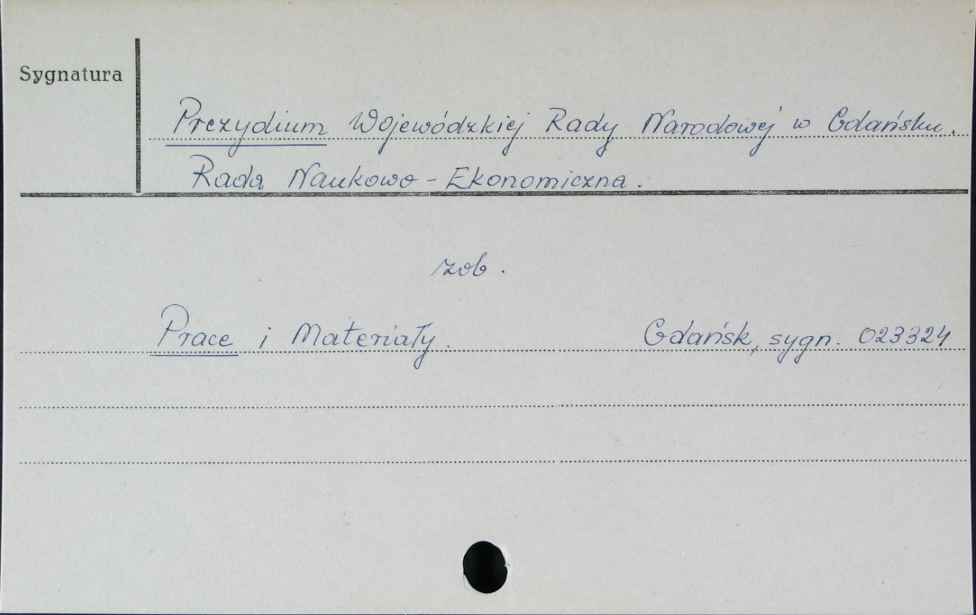 Sygnatura
Prezydium Wojewódzkiej Rady Narodowej w Gdańsku.
Rada Naukowo - Ekonomiczna.
zob.
Prace i Materiały. Gdańsk, sygn. 023324